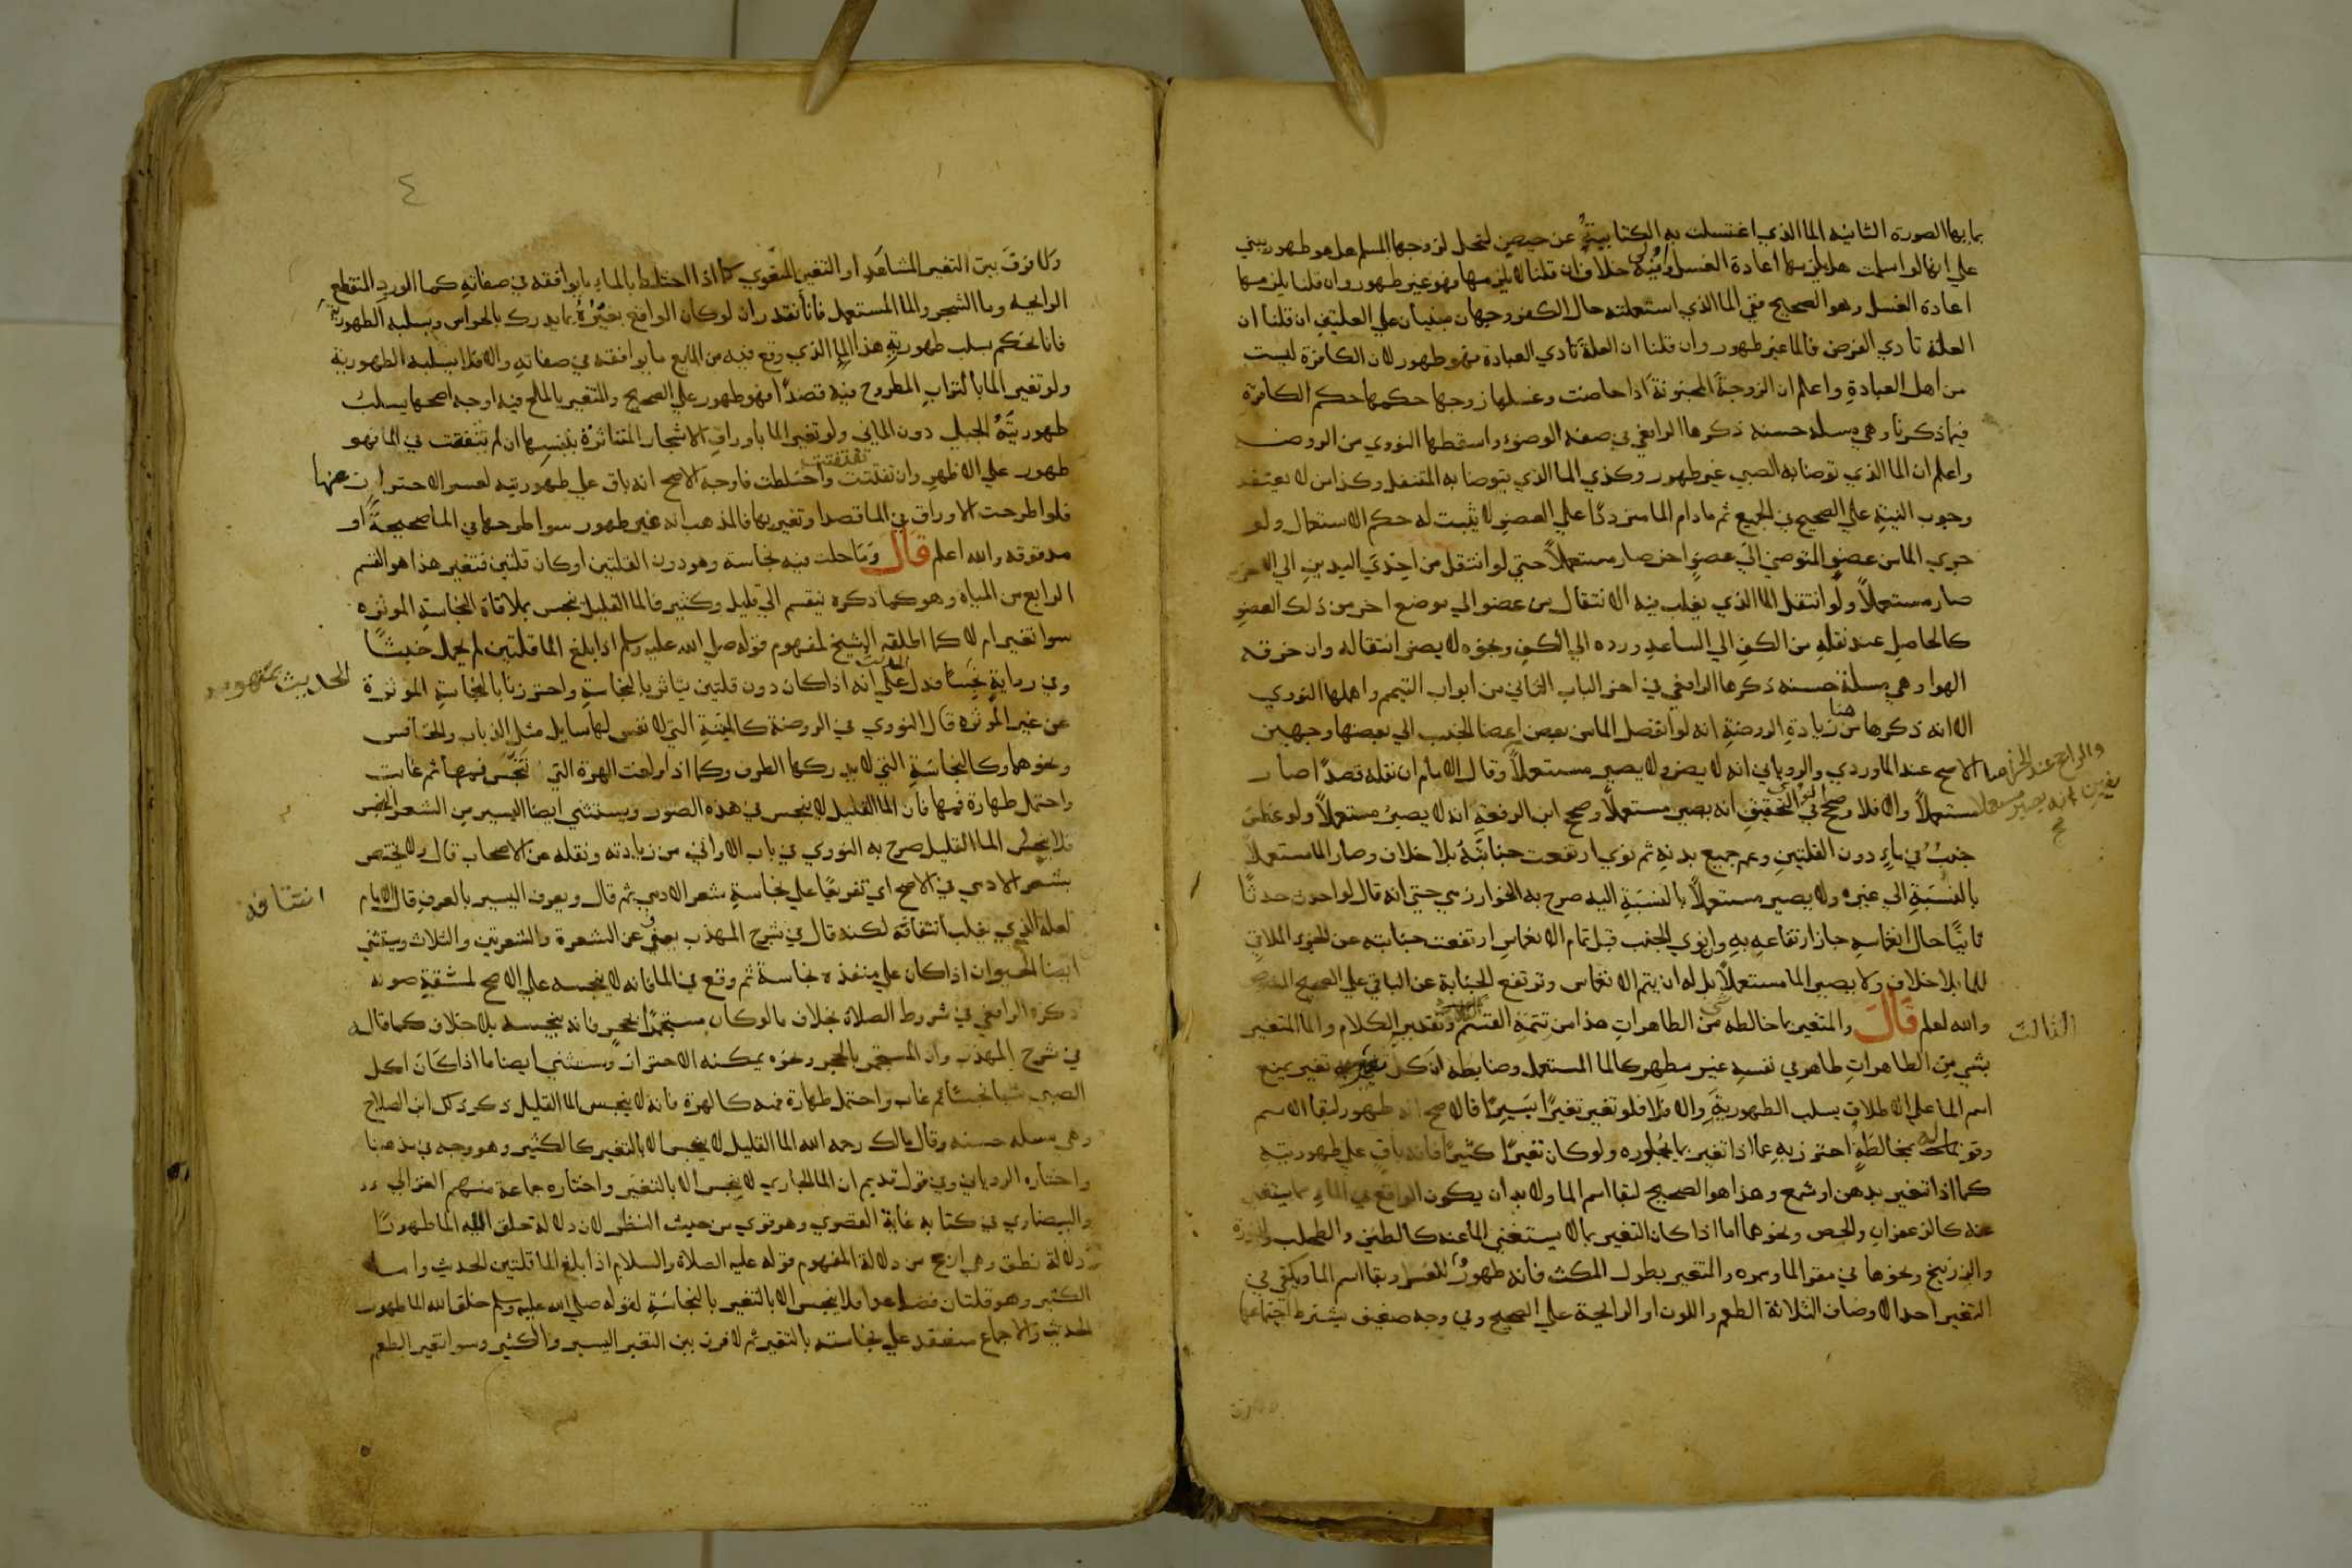 بمايها الصورة الثانية الما الذي اغتسلت به الكتابية عن حيض لتحل لزوجها المسلم هل هو طهور يبني
علي انها لو اسلمت هل يلزمها اعادة الغسل فيه خلاف ان قلنا لا يلزمها فهو غير طهور وان قلنا يلزمها
اعادة الغسل وهو الصحيح ففي الما الذي استعملته حال الكفر وجهان مبنيان علي العلتين ان قلنا ان
العلة تادي الفرض فالما غير طهور وان قلنا ان العلة تادي العبادة فهو طهور لان الكافرة ليست
من اهل العبادة واعلم ان الزوجة المجنونة اذا حاضت وغسلها زوجها حكمها حكم الكافرة
فيما ذكرنا وهي مسلة حسنة ذكرها الرافعي في صفة الوضوء واسقطها النووي من الروضة
واعلم ان الما الذي توضا به الصبي غير طهور وكذي الما الذي يتوضا به المتنفل وكذا من لا يعتقد
وجوب النية علي الصحيح في الجميع ثم مادام الما مترددًا علي العضو لا يثبت له حكم الاستعمال ولو
جري الما من عضو المتوضي الي عضو اخر صار مستعملاً حتي لو انتقل من احدي اليدين الي الاخري
صار مستعملاً ولو انتقل الما الذي يغلب فيه الانتقال من عضو الي موضع اخر من ذلك العضو
كالحاصل عند نقله من الكف الي الساعد ورده الي الكف ونحوه لا يضر انتقاله وان خرقه
الهوا وهي مسلة حسنة ذكرها الرافعي في اخر الباب الثاني من ابواب التيمم واهملها النووي
الا انه ذكرها هنا من زيادة الروضة انه لو انفصل الما من بعض اعضا الجنب الي بعضها وجهين
الاصح عند الماوردي والروياني انه لا يضر ولا يصير مستعملاً وقال الامام ان نقله قصدًا صار
مستعملاً والا فلا وصحح النووي في التحقيق انه يصير مستعملاً وصحح ابن الرفعة انه لا يصير مستعملاً ولو غطس
جنب في ماء دون القلتين وعم جميع بدنه ثم نوي ارتفعت جنابته بلا خلاف وصار الما مستعملاً
بالنسبة الي غيره ولا يصير مستعملاً بالنسبة اليه صرح به الخوارزمي حتي انه قال لو احدث حدثًا
ثانيًا حال انغماسه جاز ارتفاعه به وان نوي الجنب قبل تمام الانغماس ارتفعت جنابته عن الجزء الملاقي
للما بلا خلاف ولا يصير الما مستعملاً بل له ان يتم الانغماس وترتفع الجنابة عن الباقي علي الصحيح
والله اعلم قال والمتغير بما خالطه من الطاهرات هذا من تتمة القسم الثالث وتقدير الكلام والما المتغير
بشي من الطاهرات طاهر في نفسه غير مطهر كالما المستعمل وضابطه ان كل تغير يمنع
اسم الما علي الاطلاق يسلب الطهورية والا فلا فلو تغير تغيرًا يسيرًا فالاصح انه طهور لبقا الاسم
وقوله بمخالطة احترز به عما اذا تغير بما يجاوره ولو كان تغيرًا كثيرًا فانه باق علي طهوريته
كما اذا تغير بدهن او شمع وهذا هو الصحيح لبقا اسم الما ولابد ان يكون الواقع في الماء مما يستغني
عنه كالزعفران والجص ونحوهما اما اذا كان التغير بما لا يستغني الما عنه كالطين والطحلب والنورة
والزرنيخ ونحوها في مقر الما وممره والمتغير بطول المكث فانه طهور للعسر وبقا اسم الما ويكفي في
التغير احد الاوصاف الثلاثة الطعم واللون او الرايحة علي الصحيح وفي وجه ضعيف يشترط اجتماعها
والراجح عند
انه يصير مستعملا
الثالث
٤
ولا فرق بين التغير المشاهد او التغير المعنوي كما اذا اختلط بالماء ما يوافقه في صفاته كما الورد المنقطع
الرايحة وما الشجر والما المستعمل فانا نقدر ان لو كان الواقع بغيره بما يدرك بالحواس ويسلبه الطهورية
فانا نحكم بسلب طهورية هذا الما الذي وقع فيه من المايع ما يوافقه في صفاته والا فلا يسلبه الطهورية
ولو تغير الما بالتراب المطروح فيه قصدًا فهو طهور علي الصحيح والمتغير بالملح فيه اوجه اصحها يسلب
طهوريته الجبلي دون المايي ولو تغير الما باوراق الاشجار المتناثرة بنفسها ان لم تتفتت في الما فهو
طهور علي الاظهر وان تفتتت واختلطت فاوجه الاصح انه باق علي طهوريته لعسر الاحتراز عنها
فلو طرحت الاوراق في الما قصدا وتغير بها فالمذهب انه غير طهور سوا طرحها في الما صحيحة او
مدقوقه والله اعلم قال وما حلت فيه نجاسة وهو دون القلتين او كان قلتين فتغير هذا هو القسم
الرابع من المياه وهو كما ذكره ينقسم الي قليل وكثير فالما القليل ينجس بملاقاة النجاسة الموثرة
سوا تغير ام لا كما اطلقه الشيخ لمفهوم قوله صلي الله عليه وسلم اذا بلغ الما قلتين لم يحمل خبثًا
وفي رواية نجسًا فدل علي انه اذا كان دون قلتين يتاثر بالنجاسة واحترزنا بالنجاسة الموثرة
عن غير الموثرة قال النووي في الروضة كالميتة التي لا نفس لها سايل مثل الذباب والخنافس
ونحوهما وكالنجاسة التي لا يدركها الطرف وكما اذا ولغت الهرة التي تنجس فمها ثم غابت
واحتمل طهارة فمها فان الما القليل لا ينجس في هذه الصور ويستثني ايضا اليسير من الشعر النجس
فلا ينجس الما القليل صرح به النووي في باب الاواني من زيادته ونقله عن الاصحاب قال ولا يختص
بشعر الادمي في الاصح اي تفريعًا علي نجاسة شعر الادمي ثم قال ويعرف اليسير بالعرف قال الامام
لعله الذي يغلب انتفاقه لكنه قال في شرح المهذب يعفي عن الشعرة والشعرتين والثلاث ويستثني
ايضا الحيوان اذا كان علي منفذه نجاسة ثم وقع في الما فانه لا ينجسه علي الاصح لمشقة صونه
ذكره الرافعي في شروط الصلاة بخلاف ما لو كان مستجمرًا بالحجر فانه ينجسه بلا خلاف كما قاله
في شرح المهذب وان المستجمر بالحجر ونحوه يمكنه الاحتراز ويستثني ايضا ما اذا كان اكل
الصبي شيا نجسًا ثم غاب واحتمل طهارة فمه كالهرة فانه لا ينجس الما القليل ذكر ذلك ابن الصلاح
وهي مسله حسنه وقال مالك رحمه الله الما القليل لا ينجس الا بالتغير كالكثير وهو وجه في مذهبنا
واختاره الروياني وفي قول قديم ان الما الجاري لا ينجس الا بالتغير واختاره جماعة منهم الغزالي
والبيضاوي في كتابه غاية القصوي وهو قوي من حيث النظر لان دلالة خلق الله الما طهورًا
دلالة نطق وهي ارجح من دلالة المفهوم قوله عليه الصلاة والسلام اذا بلغ الما قلتين الحديث واما
الكثير وهو قلتان فصاعدا فلا ينجس الا بالتغير بالنجاسة لقوله صلي الله عليه وسلم خلق الله الما طهورا
الحديث والاجماع منعقد علي نجاسته بالتغير ثم لا فرق بين التغير اليسير والكثير وسوا تغير الطعم
الحديث بمفهومه
انتفافه